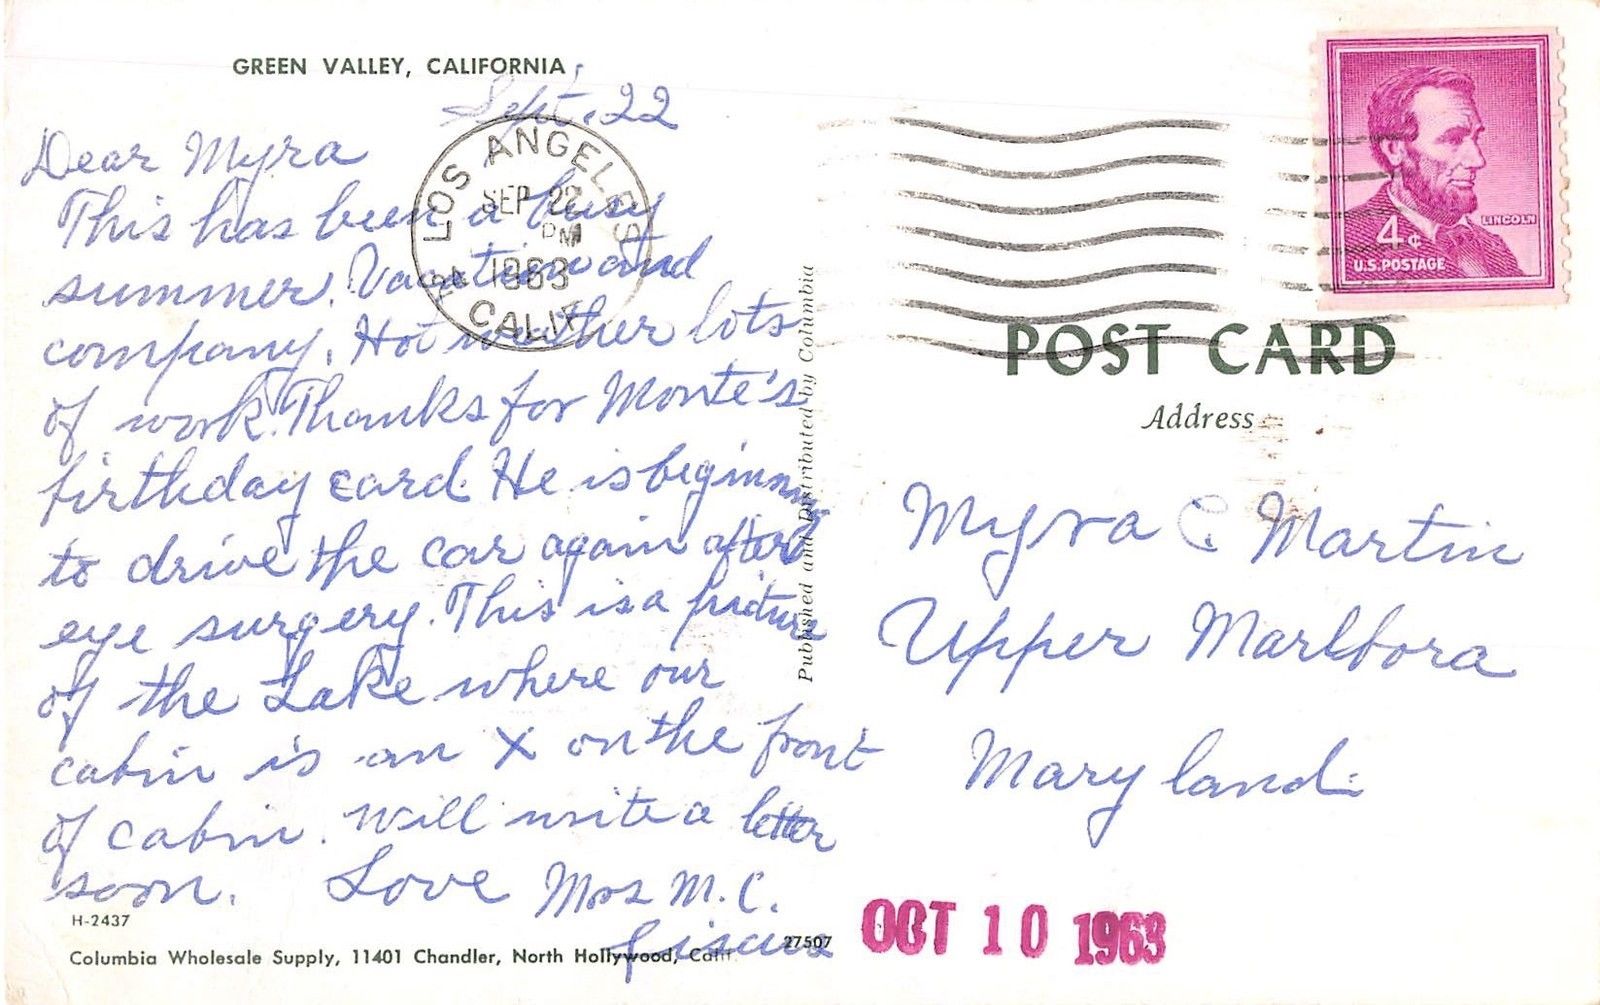 GREEN VALLEY, CALIFORNIA
Sept. 22
Dear Myra
This has been a busy
summer. Vacation and
company. Hot weather lots
of work. Thanks for Monte's
birthday card. He is beginning
to drive the car again after
eye surgery. This is a picture
of the Lake where our
cabin is an X on the front
of cabin. will write a letter
soon. Love Mrs M. C.
LOS ANGELES
SEP 22
PM
1963
CALIF
Published and Distributed by Columbia
LINCOLN
4¢
U.S. POSTAGE
POST CARD
Address
Myra C Martin
Upper Marlbora
Maryland.
H-2437
Columbia Wholesale Supply, 11401 Chandler, North Hollywood, Calif.
27507
OCT 10 1963